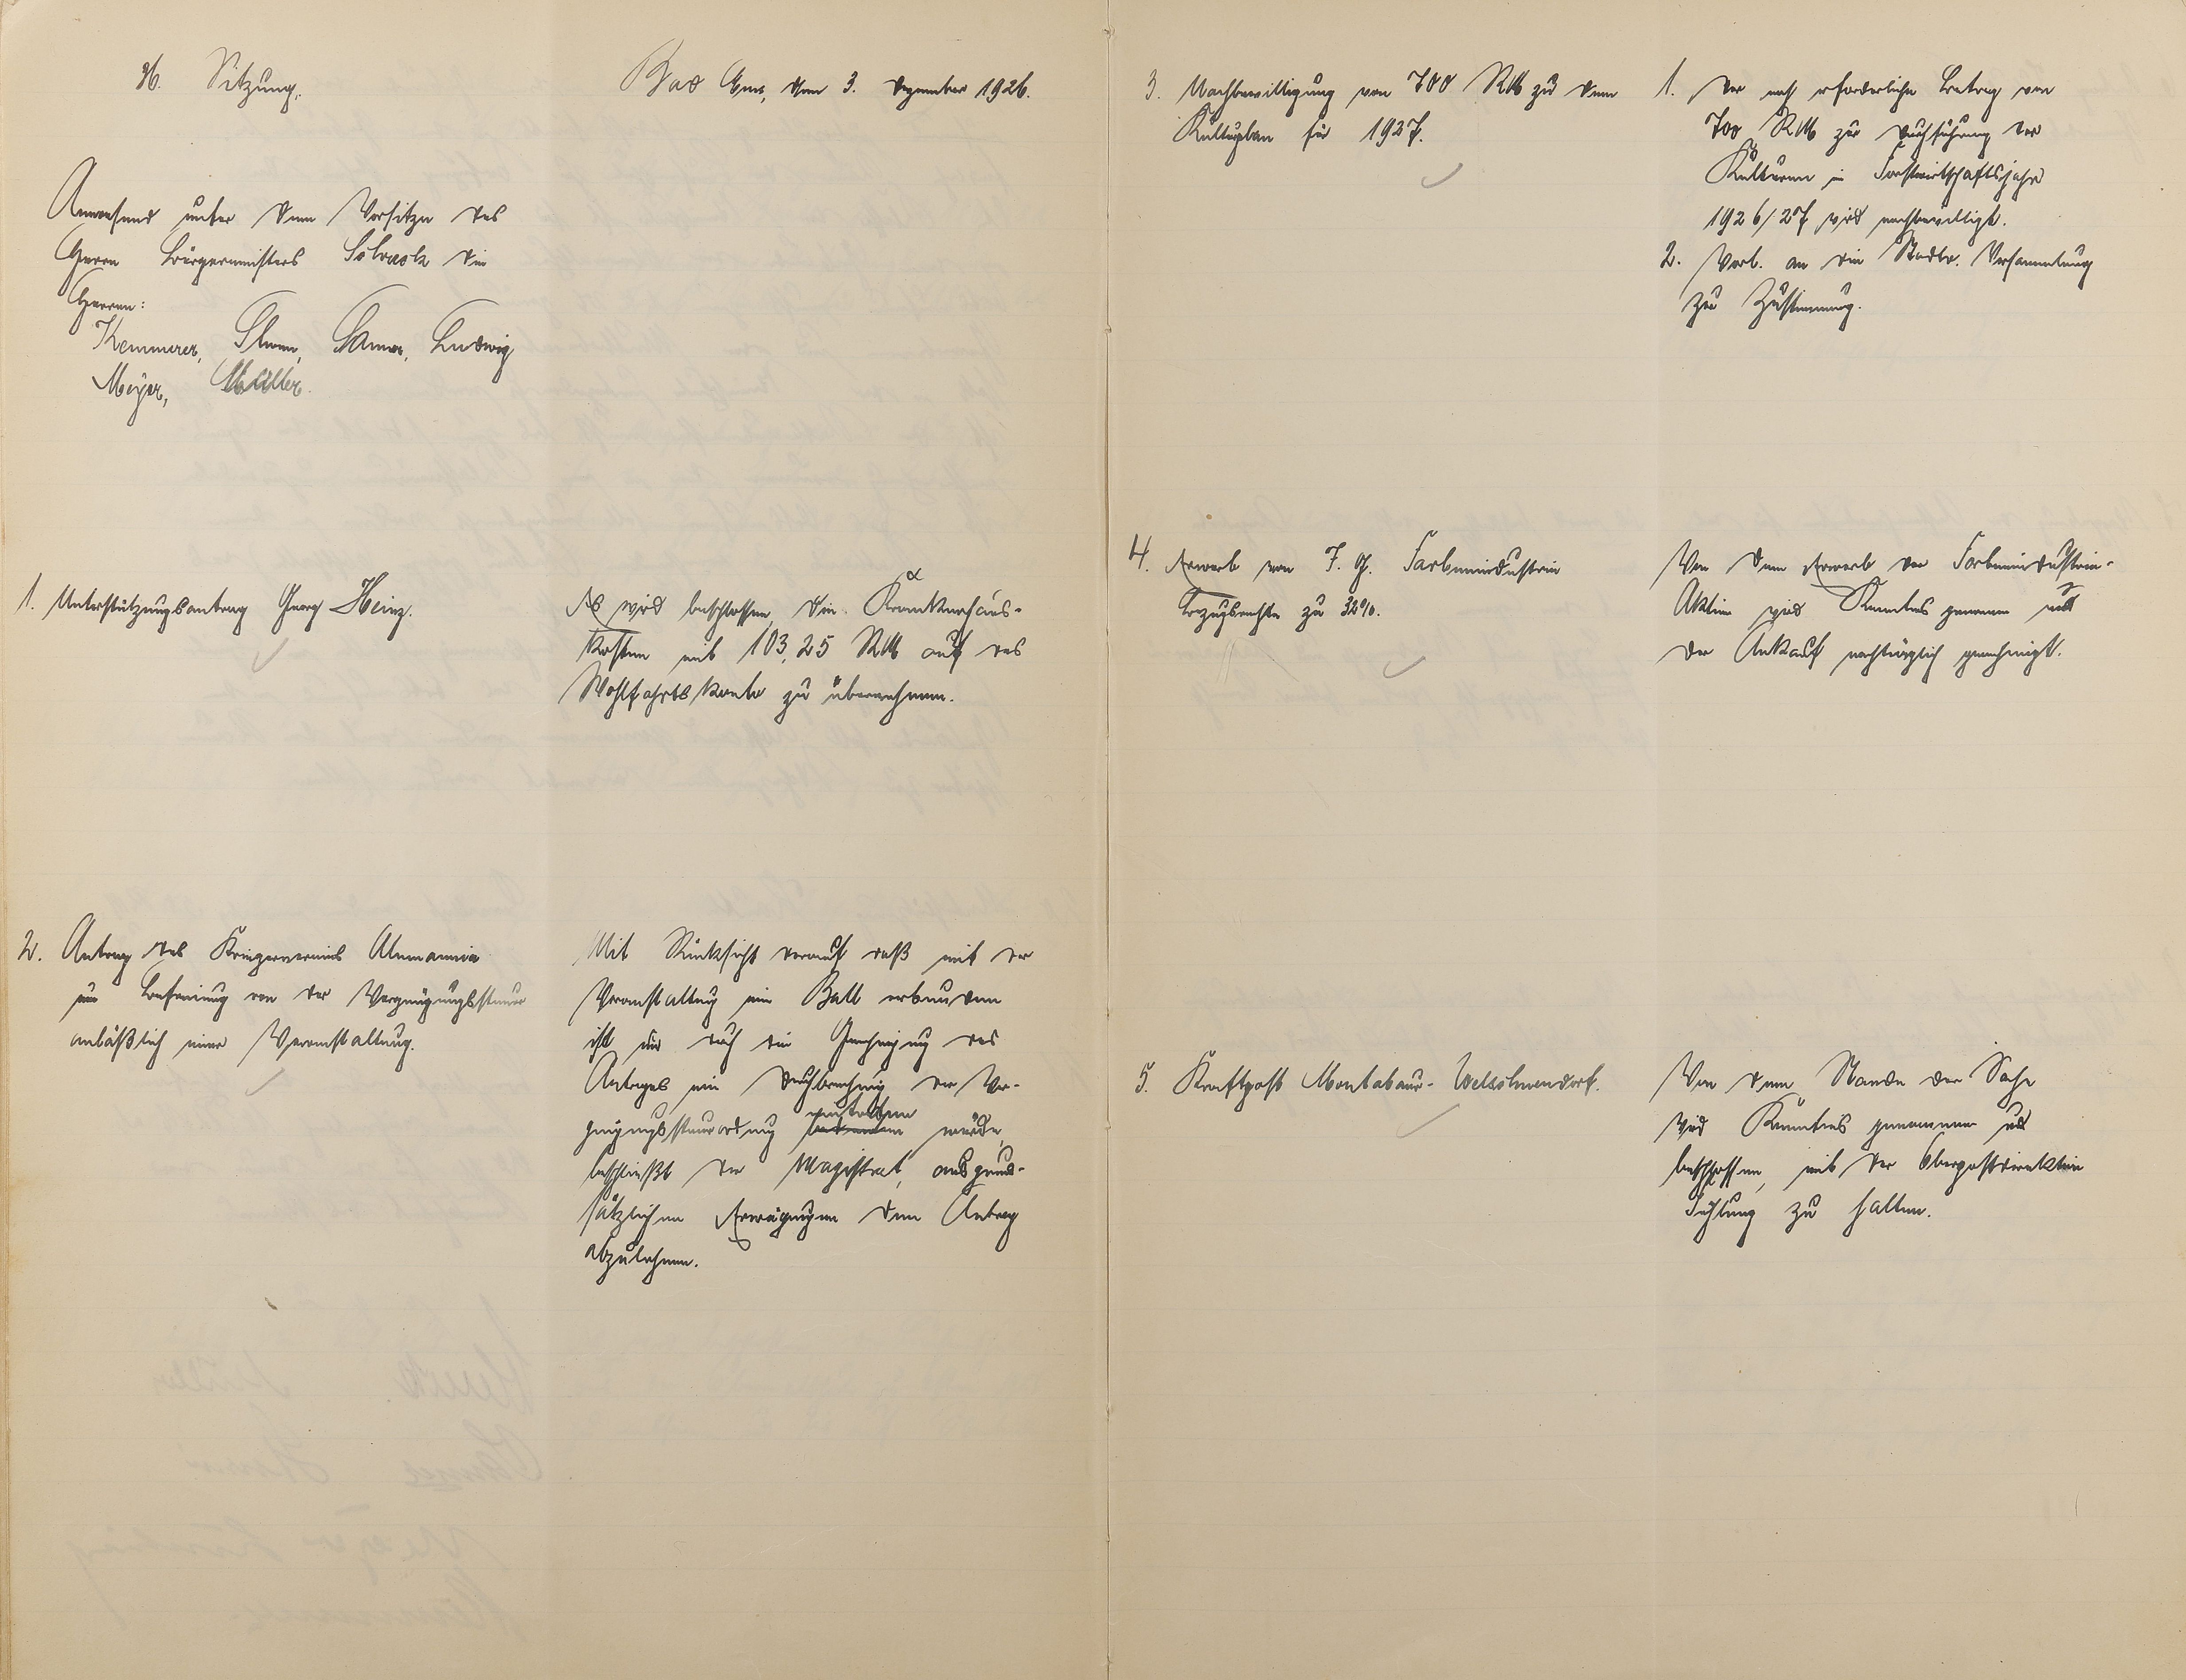 36. Sitzung.
Bad Ems, den 3. Dezember 1926.
Anwesend unter dem Vorsitze des
Herrn Bürgermeisters Schrock die
Herren:
Kemmerer, Thron, Lamer, Ludwig
Meyer, Müller.
1. Unterstützungsantrag Georg Heinz.
Es wird beschlossen, die Krankenhaus-
kosten mit 103,25 RM auf das
Wohlfahrtskonto zu übernehmen.
2. Antrag des Kriegervereins Alemannia
um Befreiung von der Vergnügungssteuer
anläßlich einer Veranstaltung.
Mit Rücksicht darauf daß mit der
Veranstaltung ein Ball verbunden
ist und durch die Genehmigung des
Antrages eine Durchbrechung der Ver-
gnügungssteuerordnung eintreten würde,
beschließt der Magistrat, aus grund-
sätzlichen Erwägungen den Antrag
abzulehnen.
3. Nachbewilligung von 700 RM zu dem
Kulturplan für 1927.
1. Der noch erforderliche Betrag von
700 RM zur Durchführung der
Kulturen im Forstwirtschaftsjahr
1926/27 wird nachbewilligt.
2. Vorl. an die Stadtv. Versammlung
zur Zustimmung.
4. Erwerb von I. G. Farbenindustrie
Bezugsrechte zu 32%.
Von dem Erwerb der Farbenindustrie-
Aktien wird Kenntnis genommen und
der Ankauf nachträglich genehmigt.
5. Kraftpost Montabaur-Welschneudorf.
Von dem Stande der Sache
wird Kenntnis genommen und
beschlossen, mit der Oberpostdirektion
Fühlung zu halten.